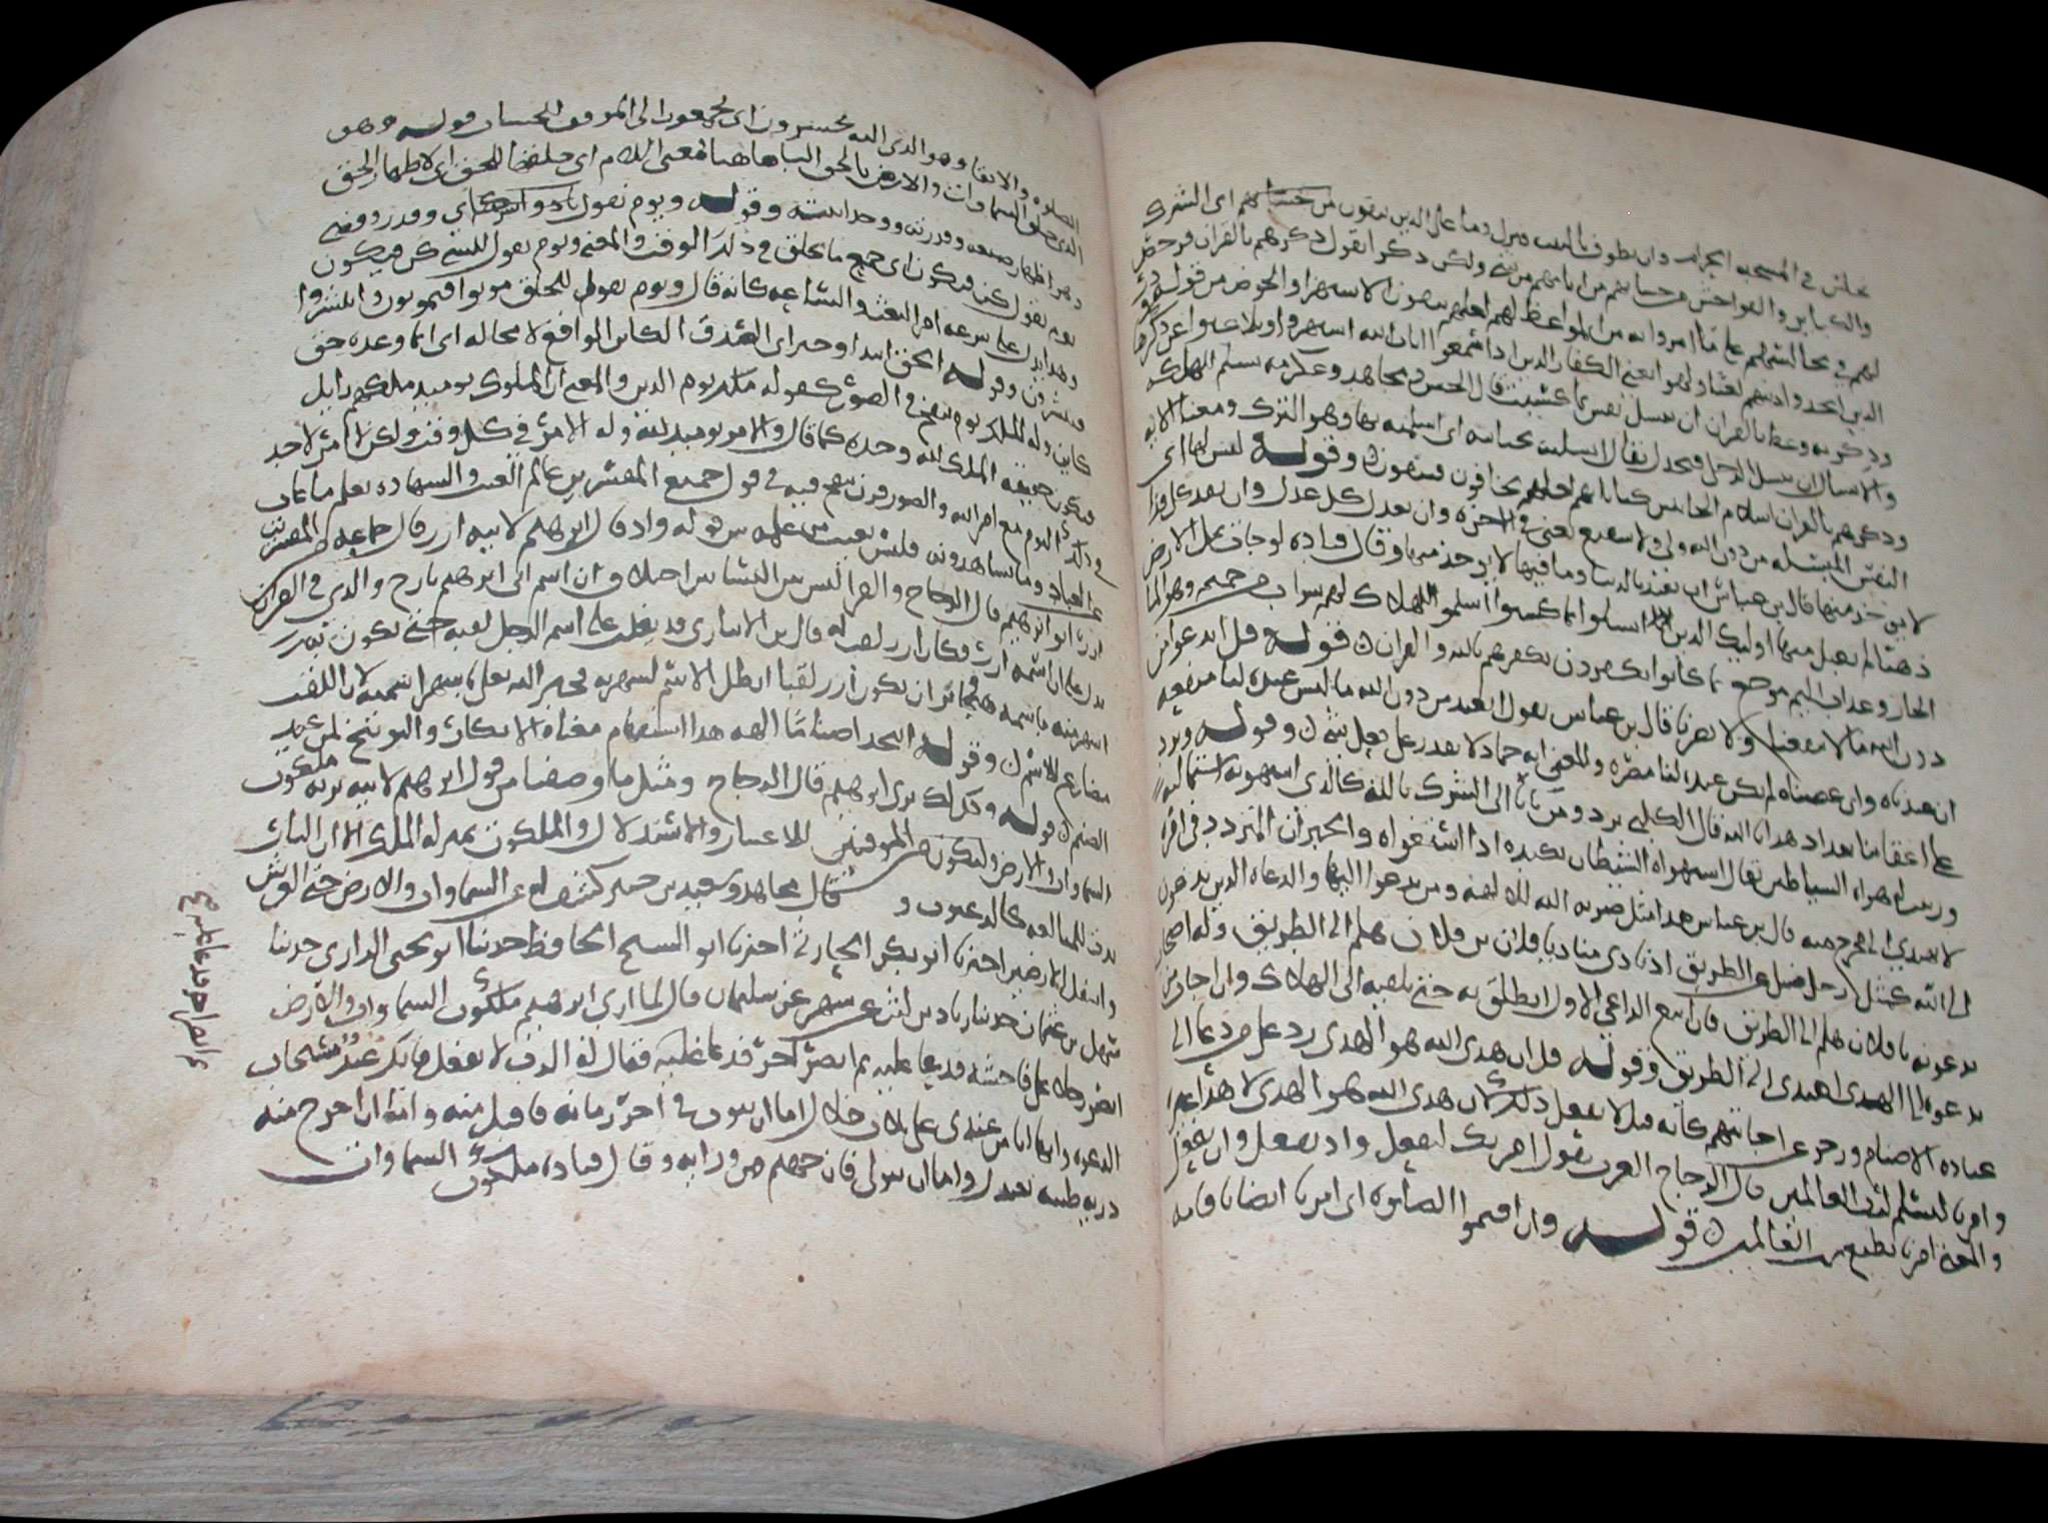 نجلس في المسجد الحرام وان نطوف بالبيت فنزل وما على الذين يتقون من حسابهم اى الشرك
والكباير والفواحش من حسابهم من اثامهم من شى ولكن ذكرا يقول ذكرهم بالقران فرخص
لهم في مجالستهم على ما امروا به من المواعظ لهم لعلهم يتقون الاستهزا والخوض قوله وذر
الذين اتخذوا دينهم لعبا ولهوا يعنى الكفار الذين اذا سمعوا ايات الله استهزوا وتلاعبوا عند ذكرها
وذكر به وعظ بالقران ان تبسل نفس بما كسبت قال الحسن ومجاهد وعكرمه تسلم للهلكه
والابسال ان يبسل الرجل فيخذل يقال ابسلت بجنايته اى اسلمته بها وهو الترك ومعنا الايه
وذكرهم بالقران اسلام الجانين بجناياتهم لعلهم يخافون فيتقون وقوله ليس لها اى
النفس المبسله من دون الله ولى ولا شفيع يعنى في الاخره وان تعدل كل عدل وان تفد كل فدا
لا يوخذ منها قال بن عباس ان تفتد بالدنيا وما فيها لا يوخذ منها وقال قتاده لو جات بمل الارض
ذهبا لم يقبل منها اوليك الذين ابسلوا بما كسبوا اسلموا للهلاك لهم شراب من حميم وهو الما
الحار وعذاب اليم موجع بما كانوا يكفرون بكفرهم بالله والقران قوله قل اندعوا من
دون الله ما لا ينفعنا ولا يضرنا قال بن عباس يقول انعبد من دون الله ما ليس عنده لنا منفعه
ان عبدناه وان عصيناه لم يكن عنده لنا مضره والمعنى انه جماد لا يقدر على فعل شى وقوله ونرد
على اعقابنا بعد اذ هدانا الله قال الكلبى نرد ومن ياتى الى الشرك بالله كالذى استهوته استماليه
وزينت له هواه الشياطين يقال استهواه الشيطان بكيده اذا استغواه والحيران المتردد في امره
لا يهتدى الى مخرج منه قال بن عباس هذا مثل ضربه الله للالهه ومن يدعوا اليها والدعاه الذين يدعون
الى الله كمثل رجل ضل عن الطريق اذ نادى مناد يا فلان بن فلان هلم الى الطريق وله اصحاب
يدعونه يا فلان هلم الى الطريق فان اتبع الداعى الاول انطلق به حتى يلقيه الى الهلاك وان اجاب من
يدعوه الى الهدى اهتدى الى الطريق وقوله قل ان هدى الله هو الهدى رد على من دعا الى
عباده الاصنام وزجر عن اجابتهم كانه قيل لا تفعل ذلك لان هدى الله هو الهدى لا هدى غيره
وامرنا لنسلم لرب العالمين قال الزجاج العرب تقول امرتك لتفعل وان تفعل وان بفعل
والمعنى امرنا نطيع رب العالمين قوله وان اقيموا الصلوه اى امرنا ايضا باقامه
الصلوه والاتقا وهو الذى اليه تحشرون اى تجمعون الى الموقف للحساب قوله وهو
الذى خلق السماوات والارض بالحق البا هاهنا بمعنى اللام اى خلقها للحق اى لاظهار الحق
وهو اظهار صنعه وقدرته ووحدانيته وقوله ويوم يقول اى وقدر وقضى
يوم يقول كن فيكون اى جميع ما يخلق في ذلك الوقت والمعنى ويوم يقول للشى كن فيكون
وهذا يدل على سرعه امر البعث والساعه كانه قال ويوم يقول للخلق موتوا فيموتون وانتشروا
فينتشرون وقوله الحق ابتدا وخبر اى الصدق الكاين الواقع لا محاله اى ان ما وعده حق
كاين وله الملك يوم ينفخ في الصور كقوله ملك يوم الدين والمعنى ان الملوك يوميذ ملكهم زايل
فيكون حقيقه الملك لله وحده كما قال والامر يوميذ لله وله الامر في كل وقت ولكن لا امر لاحد
في ذلك اليوم مع امر الله والصور قرن ينفخ فيه في قول جميع المفسرين عالم الغيب والشهاده يعلم ما غاب
عن العباد وما يشاهدونه فليس يغيب عن علمه شى قوله واذ قال ابرهيم لابيه ازر قال جماعه المفسرين
ازر ابو ابرهيم قال الزجاج والفرا ليس بين النسابين اختلاف ان اسم ابى ابرهيم تارح والذى في القران
يدل على ان اسمه ازر وكان ازر لقب له قال بن الانبارى قد يغلب على اسم الرجل لقبه حتى يكون به
اشهر منه باسمه فجايز ان يكون ازر لقبا ابطل الاسم لشهرته فخبر الله تعلى باشهر اسميه لان اللقب
مضارع للاسم وقوله اتتخذ اصناما الهه هذا استفهام معناه الانكار والتوبيخ لمن عبد
الصنم قوله وكذلك نرى ابرهيم قال الزجاج ومثل ما وصفنا من قول ابرهيم لابيه نريه ملكوت
السماوات والارض وليكون من الموقنين للاعتبار والاستدلال والملكوت بمنزله الملك الا ان التا
زيدت للمبالغه كالرغبوت و قال مجاهد وسعيد بن جبير كشف له عن السماوات والارض حتى العرش
واسفل الارضين اخبرنا ابو بكر الحارثى اخبرنا ابو الشيخ الحافظ حدثنا ابو يحيى الرازى حدثنا
سهل بن عثمان حدثنا زياد عن ليث عن شهر عن سلمان قال لما ارى ابرهيم ملكوت السماوات والارض
ابصر رجلا على فاحشه فدعا عليه ثم ابصر اخر فدعا عليه فقال له الرب لا تفعل فانك عبد مستجاب
الدعوه وانما انا من عبدى على ثلاث خلال اما ان يتوب في اخر زمانه فاقبل منه واما ان اخرج منه
ذريه طيبه تعبدنى واما ان يتولى فان جهنم من ورايه وقال قتاده ملكوت السماوات